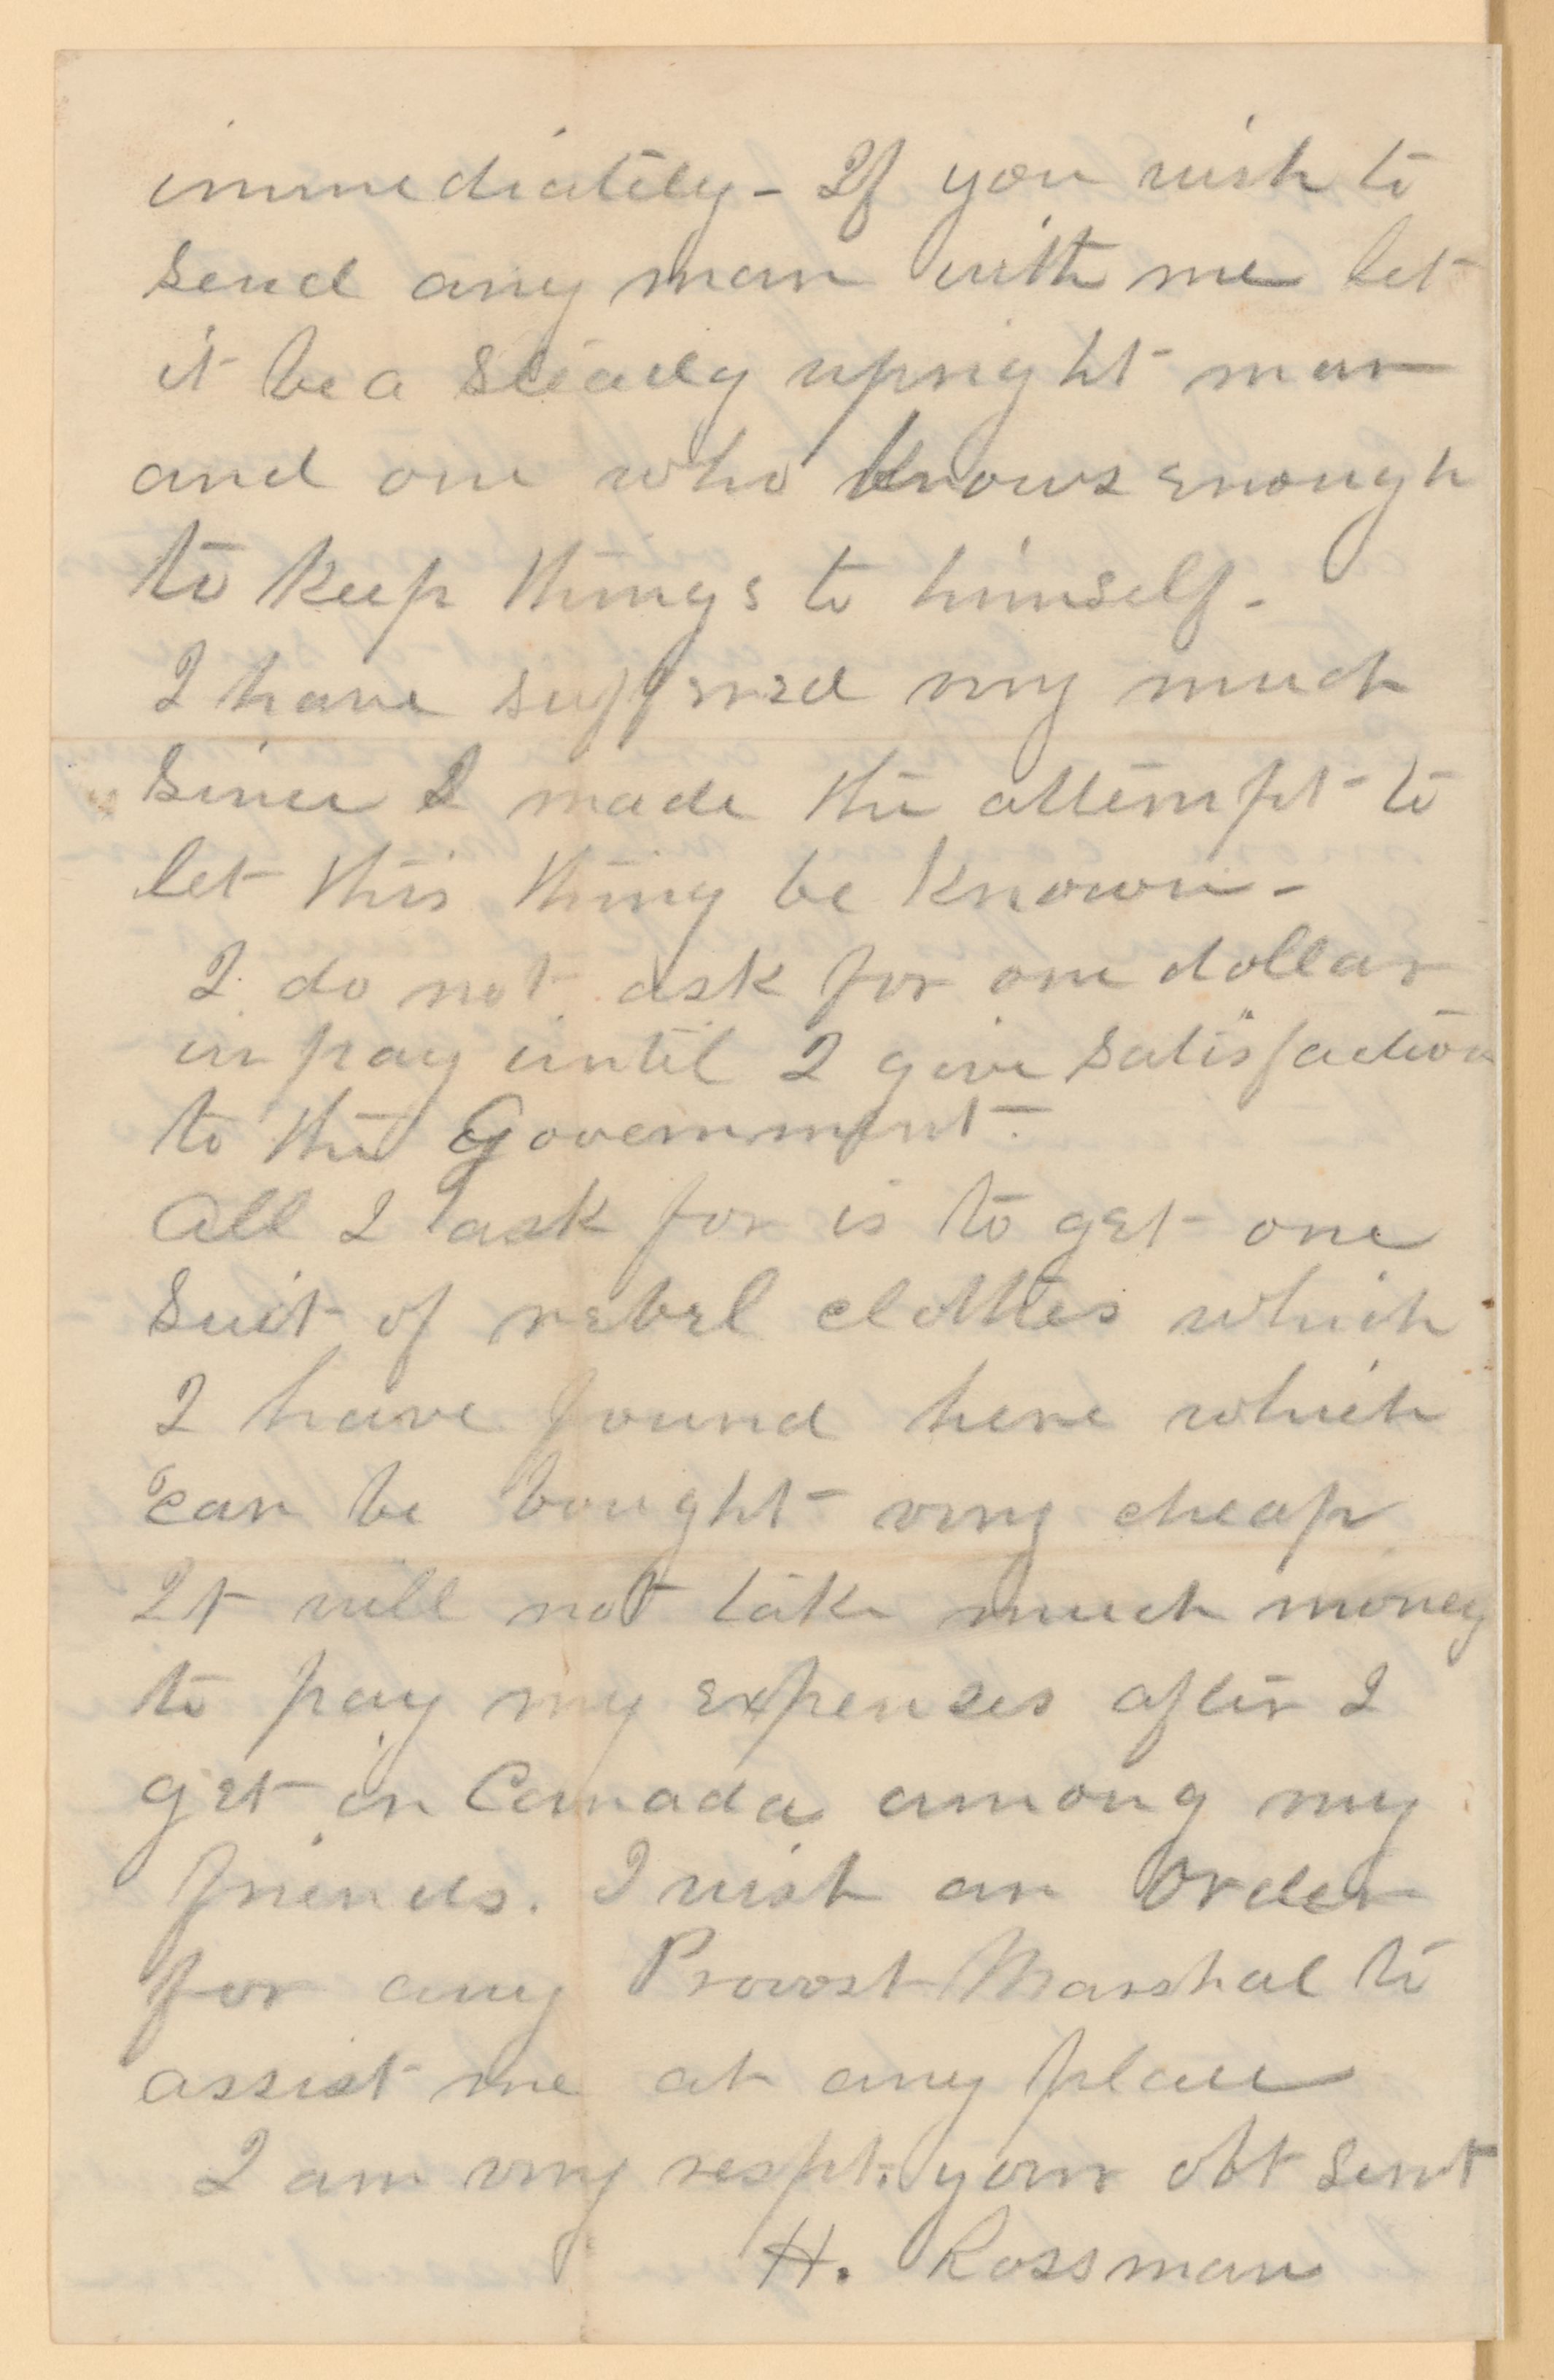 immediately - If you wish to
send any man with me let
it be a steady upright man
and one who knows enough
to keep things to himself -
I have suffered very much
since I made the attempt to
let this thing be known -
I do not ask for one dollar
in pay until I give satisfaction
to the Government.
All I ask for is to get one
suit of rebel clothes which
I have found here which
can be bought very cheap
It will not take much money
to pay my expenses after I
get in Canada among my
friends. I wish an Order
for any Provost Marshal to
assist me at any place
I am very respt. your obt servt
H. Rossman